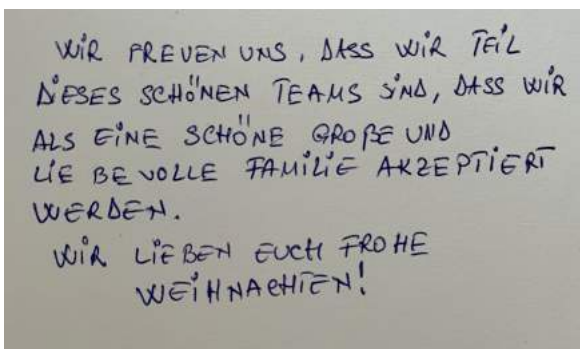 WIR FREUEN UNS, DASS WIR TEIL
DIESES SCHÖNEN TEAMS SIND, DASS WIR
ALS EINE SCHÖNE GROßE UND
LIE BE VOLLE FAMILIE AKZEPTIERT
WERDEN.
WIR LIEBEN EUCH FROHE
WEIHNACHTEN!